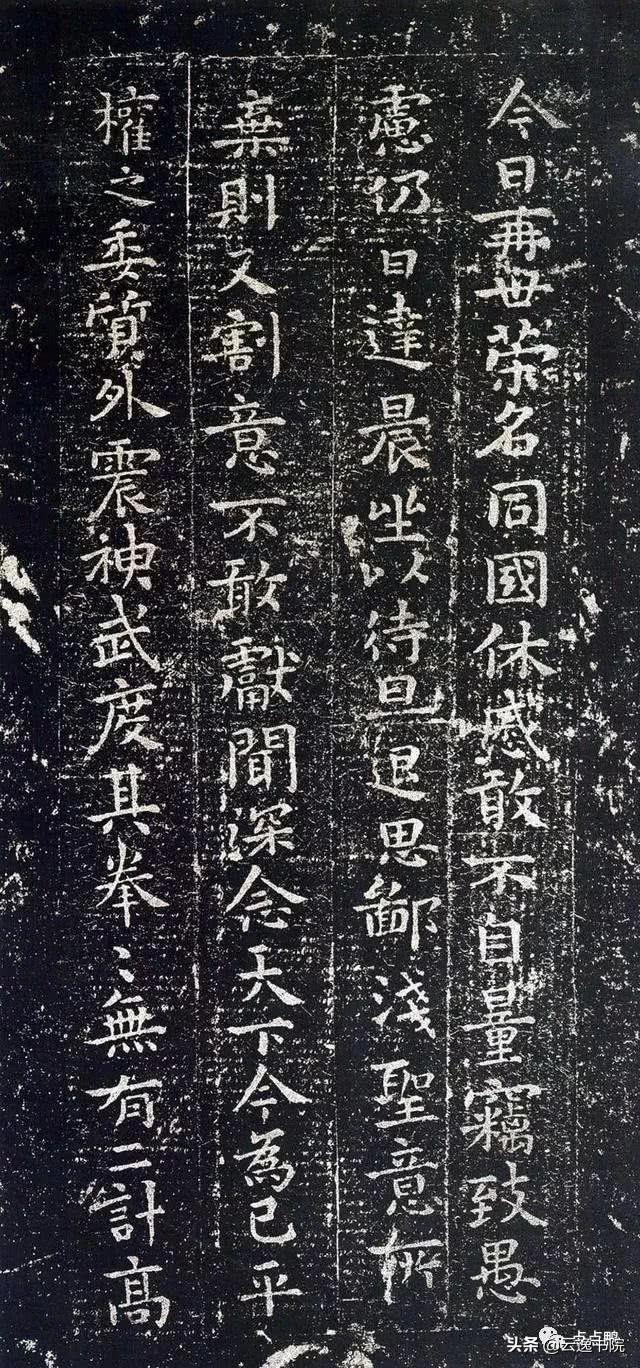 今日再世荣名同國休慼敢不自量竊致愚
慮仍日達晨坐以待旦退思鄙淺聖意所
棄則又割意不敢獻聞深念天下今為已平
權之委質外震神武度其拳〻無有二計高
一点点鸭
头条@云逸书院